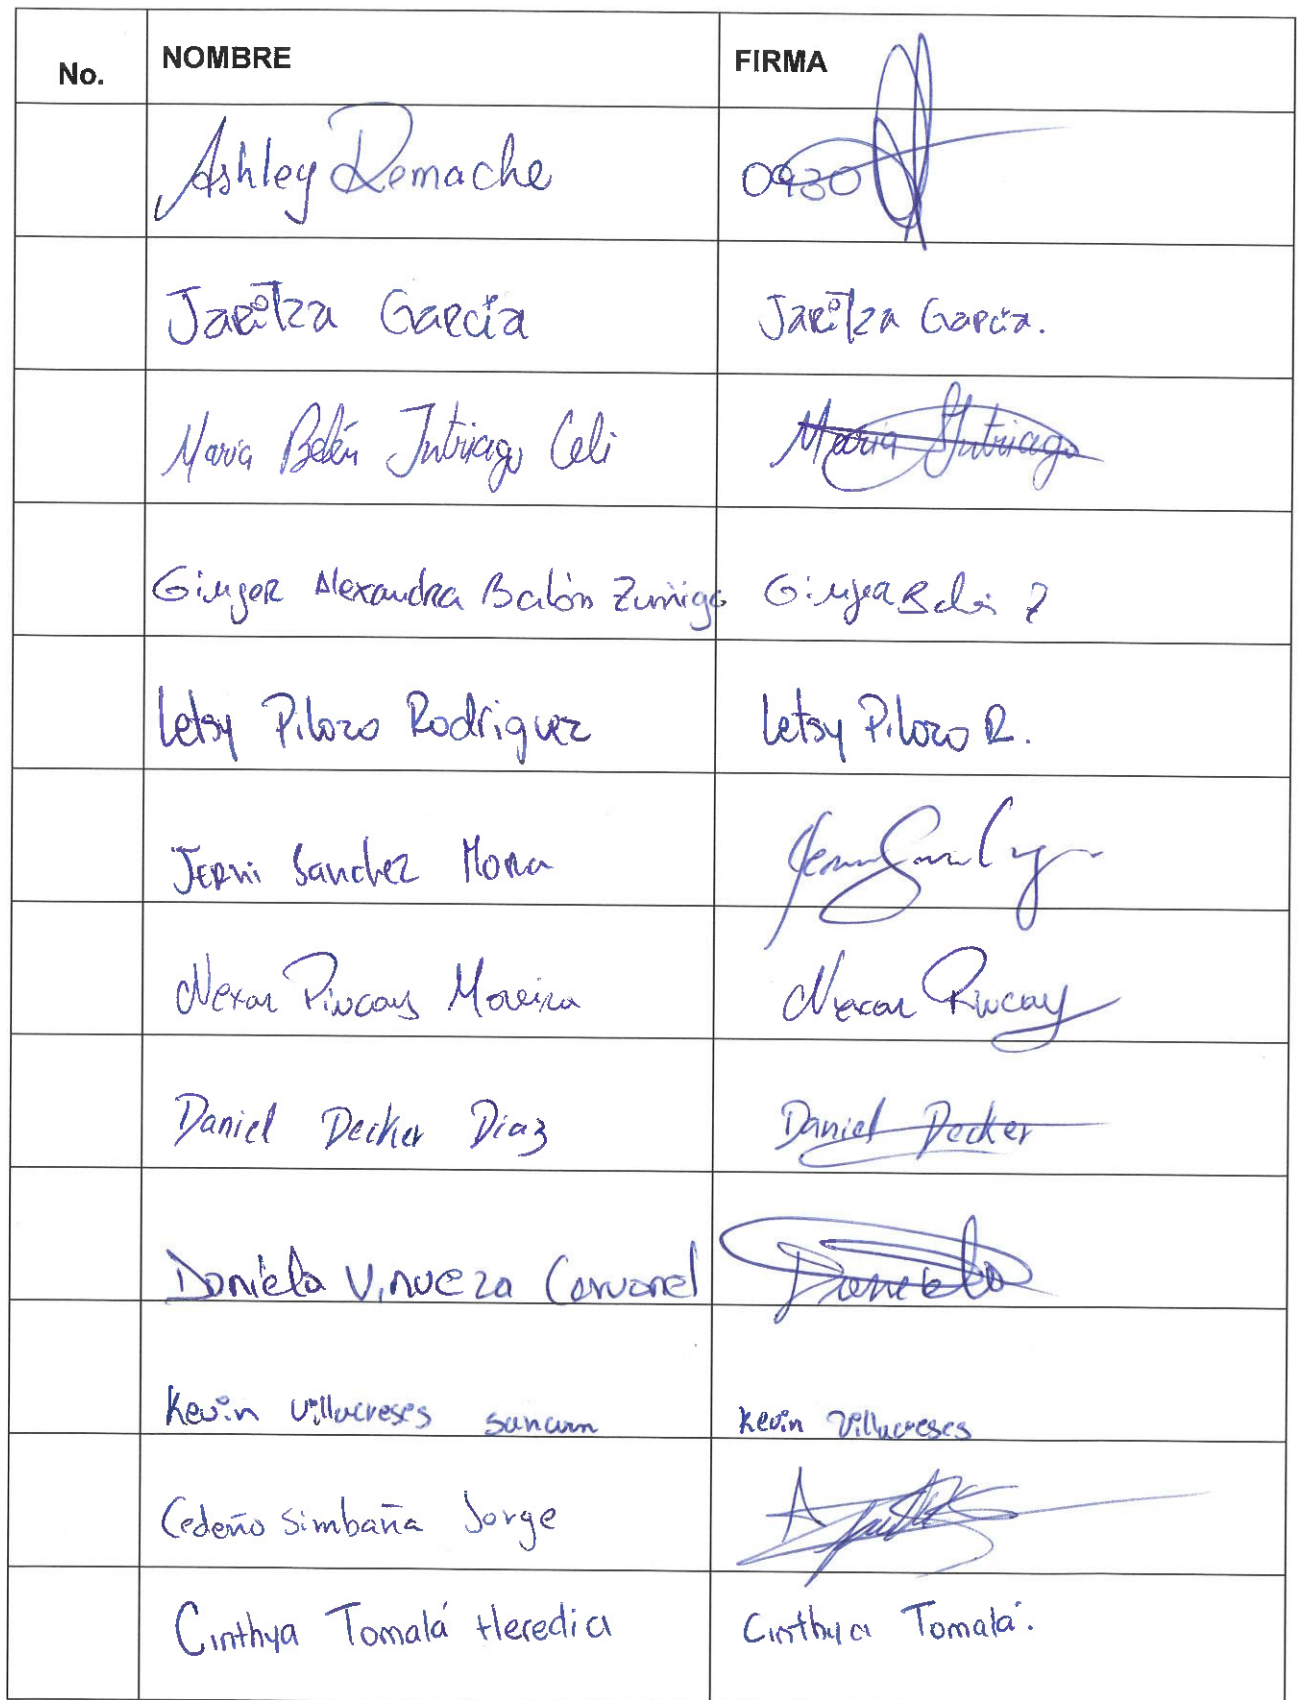 No. NOMBRE FIRMA
Ashley Remache 0930
Jaritza García Jaritza García.
Maria Belén Intriago Celi Maria Intriago
Ginger Alexandra Balón Zuñiga Ginger Balón Z
Letsy Pilozo Rodriguez Letsy Pilozo R.
Jerni Sanchez Mora
Nexar Pincay Moreira Nexar Pincay
Daniel Decker Diaz Daniel Decker
Daniela Vinueza Carvonel Daniela
Kevin Villacreses Kevin Villacreses
Cedeño Simbaña Jorge
Cinthya Tomalá Heredia Cinthya Tomalá.